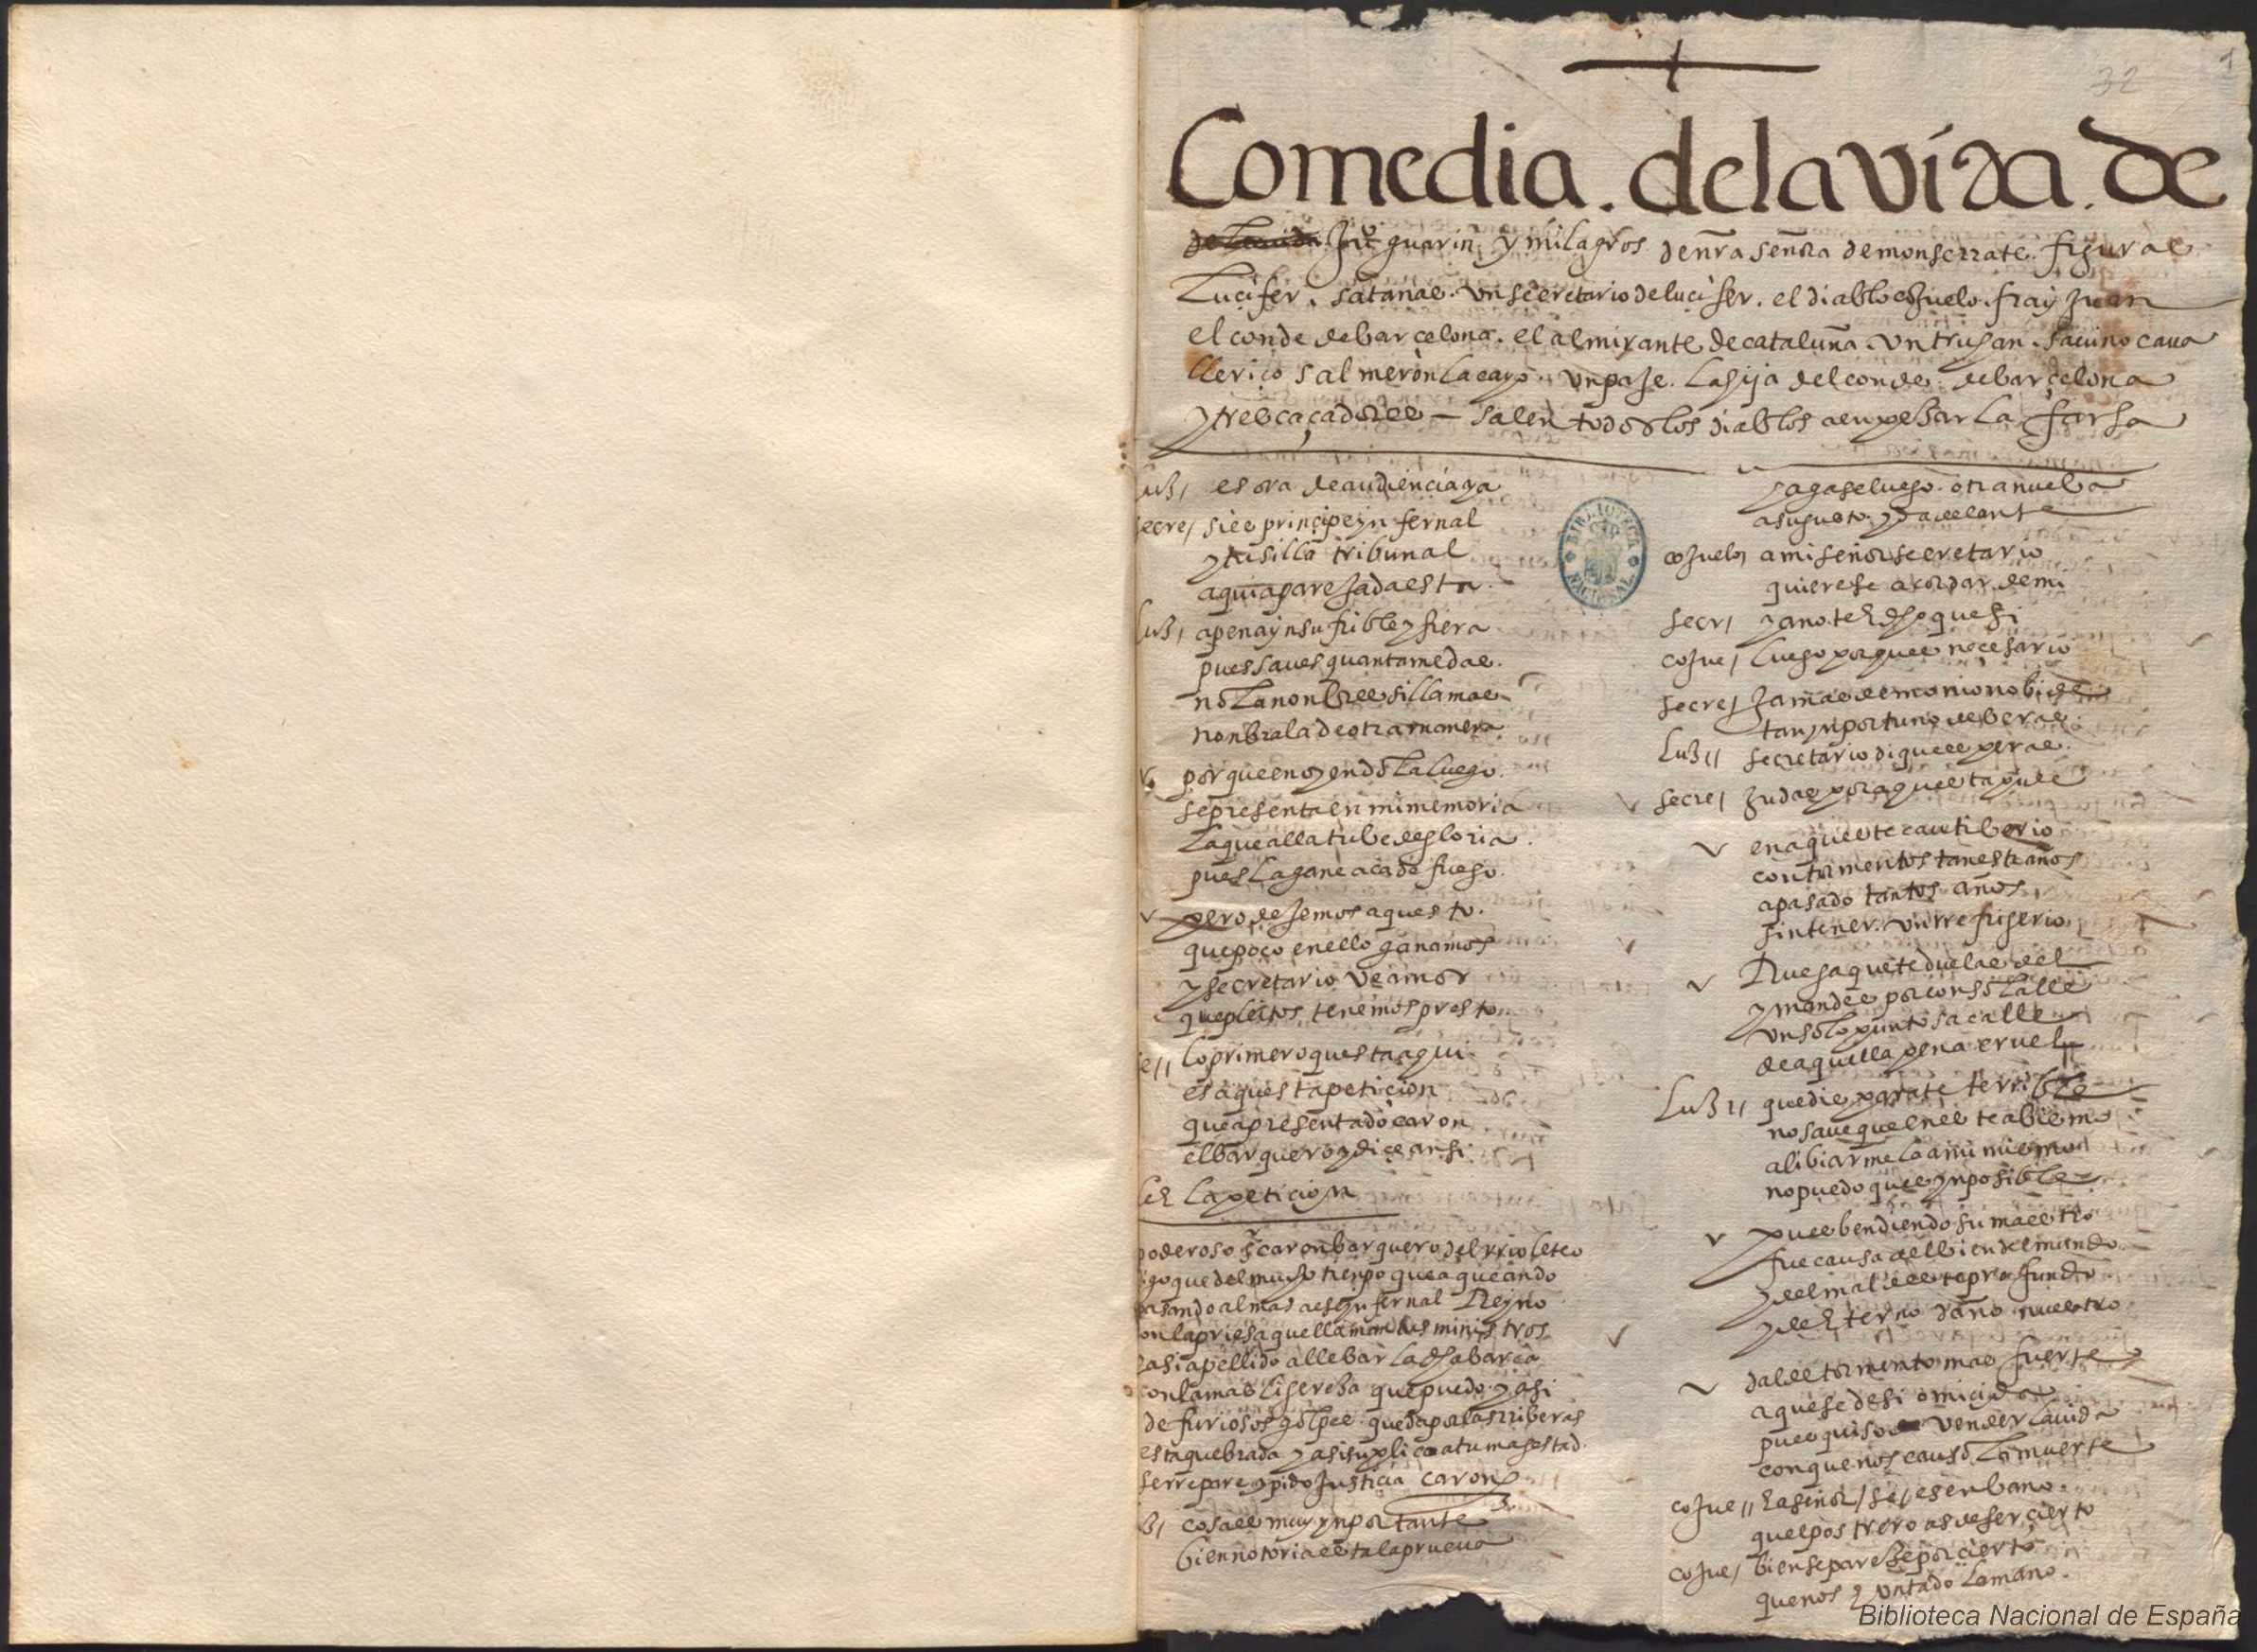 32
1
Comedia. de la vida. de
de la vida Juº guarin y milagros de nra señora de monserrate. figuras
Lucifer. satanas. un secretario de lucifer. el diablo cojuelo. fray Juan
el conde de barçelona. el almirante de cataluña. un truhan. sauino caua
llerico salmeron lacayo. un paje. la hija del conde. de barçelona
y tres caçadores — salen todos los diablos a enpesar la farsa
Luz/ es ora de audiençia ya
secre/ si es prinçipe ynfernal
y tu silla tribunal
aqui aparejada esta.
Luz/ a pena ynsufrible y fiera
pues saues quanta me das.
no la nonbres silla mas
nonbrala de otra manera
porque en oyendola luego.
se presenta en mi memoria
la que alla tube de gloria.
pues la gane aca de fuego.
pero dejemos aquesto.
que poco en ello ganamos
y secretario veamos
que pleitos tenemos presto
se// lo primero questa aqui
es aquesta petiçion
que a presentado caron
el barquero y diçe ansi
lee la petiçion
poderoso sr caron barquero del rrio leteo
digo que del mucho tienpo que a que ando
pasando almas a ese ynfernal Reyno
con la priesa que llaman tus ministros
y asi apellido a llebar la dha barca
con la mas ligereza que puedo y asi
de furiosos golpes que da por las rriberas
esta quebrada y asi suplico a tu magestad
se rrepare y pido justicia caron
Luz/ cosa es muy ynportante
bien notoria esta la prueua
hagase luego otra nueba
a su gusto y pa adelante
cojuelo/ a mi señor secretario
quierese acordar de mi
secr/ ya no te e dho que si
cojue/ luego porque es neçesario
secre/ jamas demonio no bide
tan ynportuno de beras.
Luz// secretario di que esperas.
secre/ judas por aqueste pide
en aqueste cautiberio
con tormentos tan estraños
a pasado tantos años
sin tener un rrefrigerio
Ruega que te duelas del
y mandes por consolalle
un solo punto sacalle
de aquella pena cruel
Luz// que disparate terrible
no saue que en este abismo
alibiarmela a mi mismo
no puedo que es ynposible
pues bendiendo su maestro
fue causa del bien del mundo
y del mal deste profundo
y de eterno daño nuestro
dalde tormento mas fuerte
a quese de si omiçida
pues quiso vender la uida
con que nos causo la muerte
cojue// ea señor se escribano.
quel postrero as de ser çierto
cojue/ bien se pareze por çierto
que nos e untado la mano.
BIBLIOTECA NACIONAL
Biblioteca Nacional de España